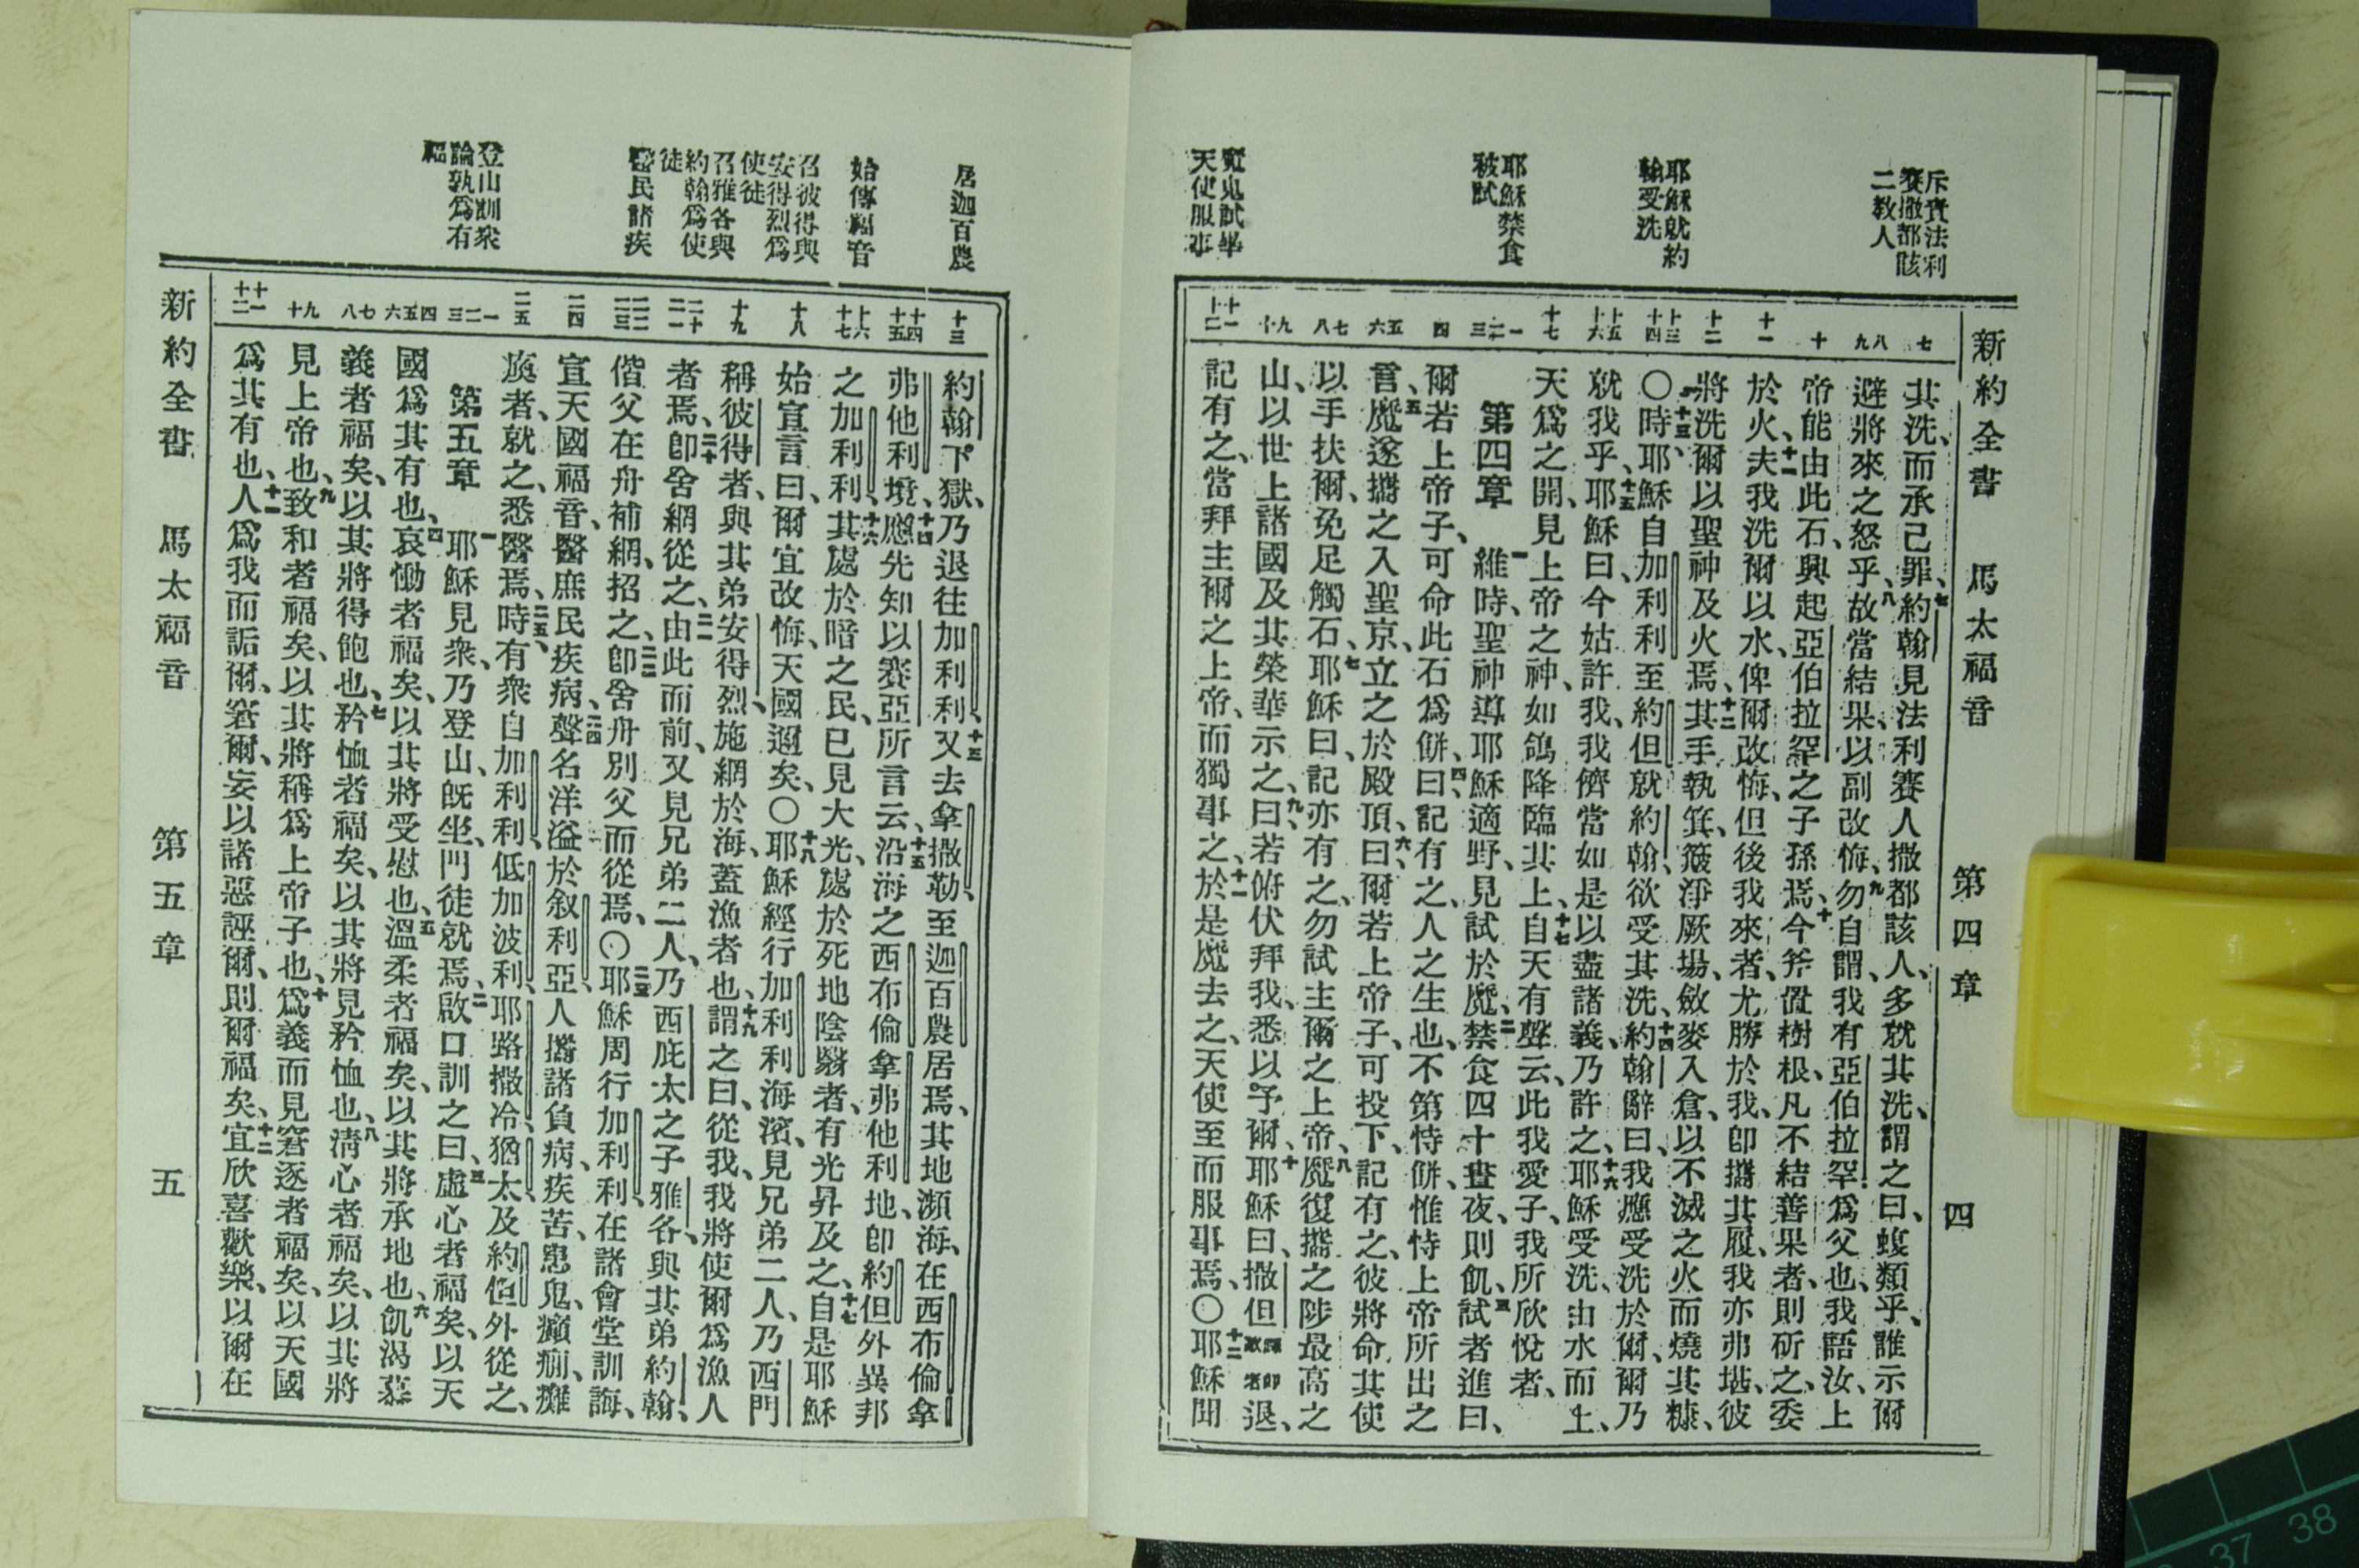 新約全書 馬太福音 第四章 四
斥責法利
賽撒都該
二教人
耶穌就約
翰受洗
耶穌禁食
被試
魔鬼試畢
天使服事
七
八
九
十
十一
十二
十三
十四
十五
十六
十七
一
二
三
四
五
六
七
八
九
十
十一
十二
其洗、而承己罪、七約翰見法利賽人撒都該人、多就其洗、謂之曰、蝮類乎、誰示爾
避將來之怒乎、八故當結果、以副改悔、九勿自謂、我有亞伯拉罕爲父也、我語汝、上
帝能由此石、興起亞伯拉罕之子孫焉、十今斧置樹根、凡不結善果者、則斫之、委
於火、十一夫我洗爾以水、俾爾改悔、但後我來者、尤勝於我、卽攜其履、我亦弗堪、彼
將洗爾以聖神及火焉、十二其手執箕、簸淨厥場、斂麥入倉、以不滅之火而燒其糠、
〇十三時、耶穌自加利利至約但就約翰、欲受其洗、十四約翰辭曰、我應受洗於爾、爾乃
就我乎、十五耶穌曰、今姑許我、我儕當如是以盡諸義、乃許之、十六耶穌受洗、由水而上、
天爲之開、見上帝之神、如鴿降臨其上、十七自天有聲云、此我愛子、我所欣悅者、
第四章 一維時、聖神導耶穌適野、見試於魔、二禁食四十晝夜、則飢、三試者進曰、
爾若上帝子、可命此石爲餅、四曰、記有之、人之生也、不第恃餅、惟恃上帝所出之
言、五魔遂攜之入聖京、立之於殿頂、六曰、爾若上帝子、可投下、記有之、彼將命其使
以手扶爾、免足觸石、七耶穌曰、記亦有之、勿試主爾之上帝、八魔復攜之陟最高之
山、以世上諸國及其榮華示之、九曰、若俯伏拜我、悉以予爾、十耶穌曰、撒但退、
記有之、當拜主爾之上帝、而獨事之、十一於是魔去之、天使至而服事焉、〇十二耶穌聞
居迦百農
始傳福音
召彼得與
安得烈爲
使徒
召雅各與
約翰爲使
徒
醫民諸疾
登山訓衆
論孰爲有
福
十三
十四
十五
十六
十七
十八
十九
二十
二一
二二
二三
二四
二五
一
二
三
四
五
六
七
八
九
十
十一
十二
約翰下獄、乃退往加利利、十三又去拿撒勒、至迦百農居焉、其地瀕海、在西布倫拿
弗他利境、十四應先知以賽亞所言云、十五沿海之西布倫拿弗他利地、卽約但外異邦
之加利利、十六其處於暗之民、已見大光、處於死地陰翳者、有光昇及之、十七自是耶穌
始宣言曰、爾宜改悔、天國邇矣、〇十八耶穌經行加利利海濱、見兄弟二人、乃西門
稱彼得者、與其弟安得烈、施網於海、蓋漁者也、十九謂之曰、從我、我將使爾爲漁人
者焉、二十卽舍網從之、二一由此而前、又見兄弟二人、乃西庇太之子雅各、與其弟約翰、
偕父在舟補網、招之、二二卽舍舟別父而從焉、〇二三耶穌周行加利利、在諸會堂訓誨、
宣天國福音、醫庶民疾病、二四聲名洋溢於敘利亞、人攜諸負病、疾苦、患鬼、癲癇、癱
瘓者、就之、悉醫焉、二五時有衆自加利利、低加波利、耶路撒冷、猶太、及約但外從之、
第五章 一耶穌見衆、乃登山、旣坐、門徒就焉、二啟口訓之曰、三虛心者福矣、以天
國爲其有也、四哀慟者福矣、以其將受慰也、五溫柔者福矣、以其將承地也、六飢渴慕
義者福矣、以其將得飽也、七矜恤者福矣、以其將見矜恤也、八清心者福矣、以其將
見上帝也、九致和者福矣、以其將稱爲上帝子也、十爲義而見窘逐者福矣、以天國
爲其有也、十一人爲我而詬爾、窘爾、妄以諸惡誣爾、則爾福矣、十二宜欣喜歡樂、以爾在
新約全書 馬太福音 第五章 五
37 38